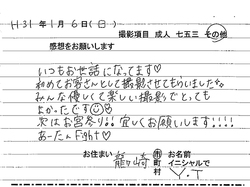 H31年1月6日(日) 撮影項目 成人 七五三 その他
感想をお願いします
いつもお世話になってます♡
初めてお客さんとして撮影させてもらいましたが
みんな優しくて楽しい撮影でとっても
よかったです
次はお宮参り!! 宜しくお願いします!!!!
あーたんFight♡
お住まい 龍ヶ崎 市町村 お名前 イニシャルで Y.T